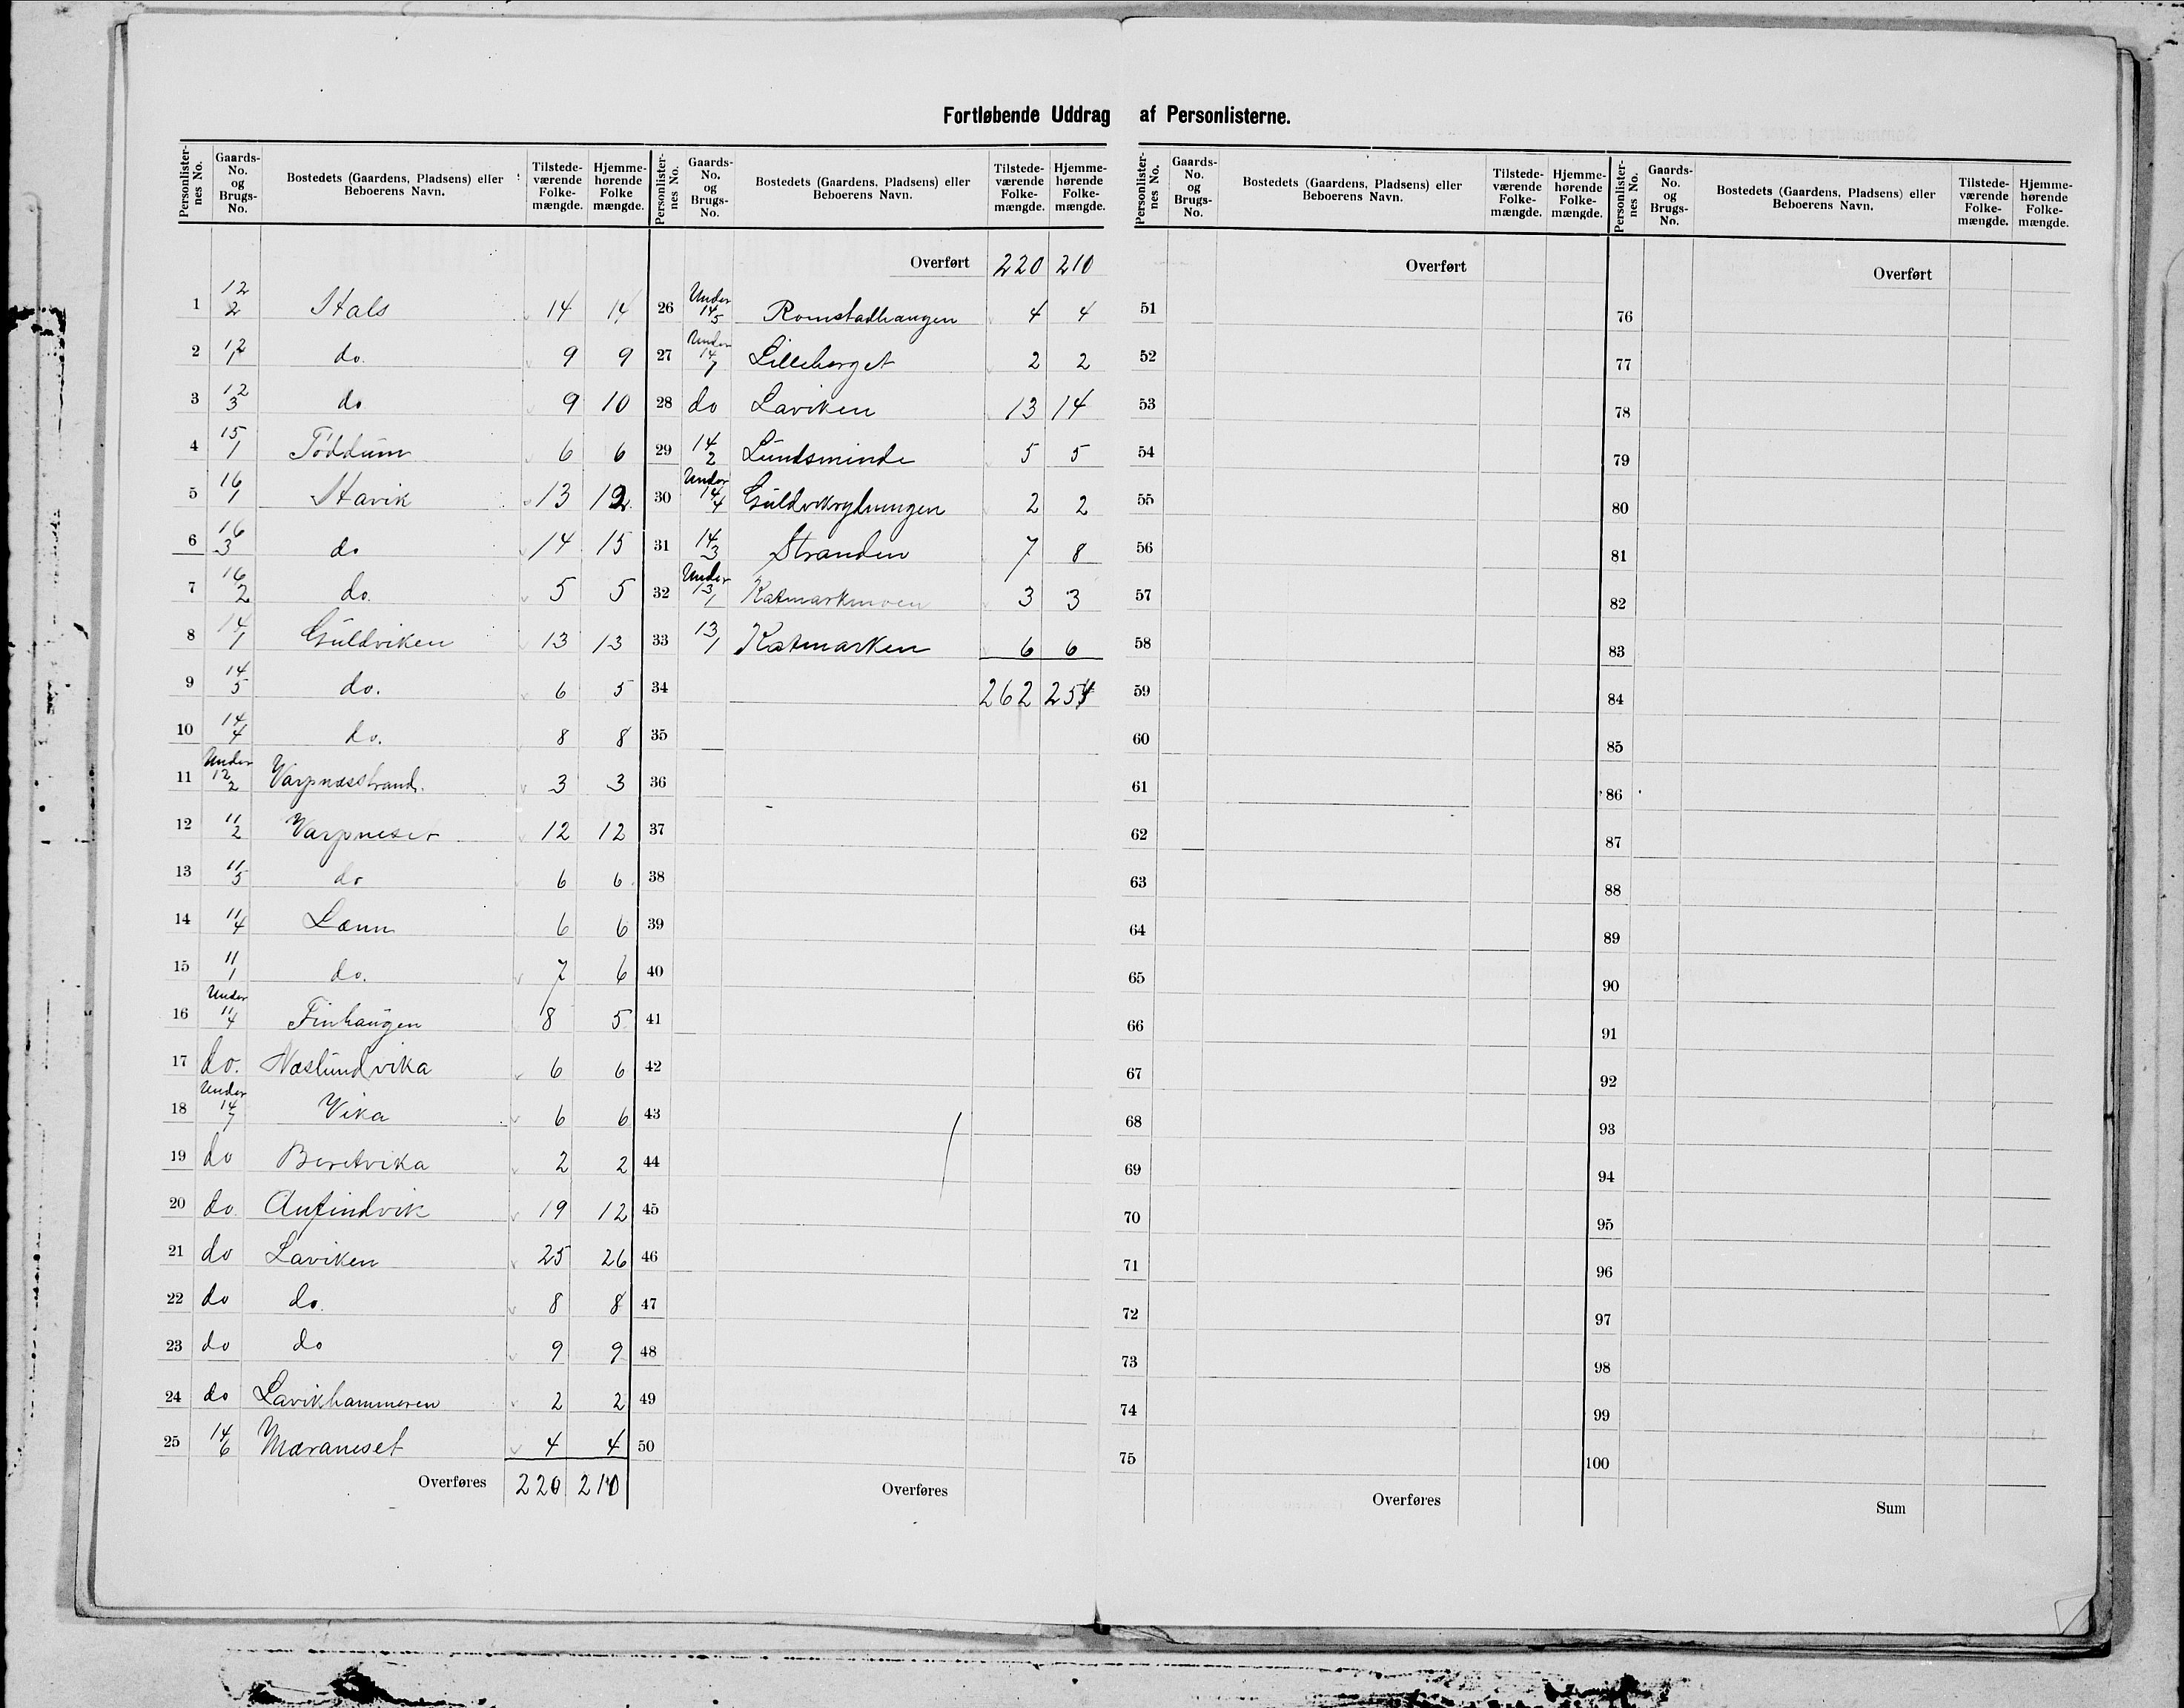 Fortløbende Uddrag af Personlisterne.
Personlisternes No. | Gaards-No. og Brugs-No. | Bostedets (Gaardens, Pladsens) eller Beboerens Navn. | Tilstedeværende Folkemængde. | Hjemmehørende Folkemængde.
1 12/2 Stals 14 14
2 12/1 do. 9 9
3 12/3 do 9 10
4 15/1 Töddum 6 6
5 16/1 Stavik 13 12
6 16/3 do 14 15
7 16/2 do. 5 5
8 14/1 Guldviken 13 13
9 14/5 do. 6 5
10 14/4 do. 8 8
11 Under 12/2 Varpnæsstrand. 3 3
12 11/2 Varpneset 12 12
13 11/5 do 6 6
14 11/4 Lænn 6 6
15 11/1 do. 7 6
16 Under 11/4 Finhaugen 8 5
17 do. Næslundvika 6 6
18 Under 14/7 Vika 6 6
19 do Beretvika 2 2
20 do Anfindvik 19 12
21 do Laviken 25 26
22 do do. 8 8
23 do do 9 9
24 do Lavikhammeren 2 2
25 14/6 Mæraneset 4 4
Overføres 220 210
Personlisternes No. | Gaards-No. og Brugs-No. | Bostedets (Gaardens, Pladsens) eller Beboerens Navn. | Tilstedeværende Folkemængde. | Hjemmehørende Folkemængde.
Overført 220 210
26 Under 14/5 Romstadhaugen 4 4
27 Under 14/7 Lilleberget 2 2
28 do Laviken 13 14
29 14/2 Lundsminde 5 5
30 Under 14/4 Guldvikrydningen 2 2
31 14/3 Stranden 7 8
32 Under 13/1 Katmarkmoen 3 3
33 13/1 Katmarken 6 6
34 262 254
35
36
37
38
39
40
41
42
43
44
45
46
47
48
49
50
Overføres
Personlisternes No. | Gaards-No. og Brugs-No. | Bostedets (Gaardens, Pladsens) eller Beboerens Navn. | Tilstedeværende Folkemængde. | Hjemmehørende Folkemængde.
Overført
51
52
53
54
55
56
57
58
59
60
61
62
63
64
65
66
67
68
69
70
71
72
73
74
75
Overføres
Personlisternes No. | Gaards-No. og Brugs-No. | Bostedets (Gaardens, Pladsens) eller Beboerens Navn. | Tilstedeværende Folkemængde. | Hjemmehørende Folkemængde.
Overført
76
77
78
79
80
81
82
83
84
85
86
87
88
89
90
91
92
93
94
95
96
97
98
99
100
Sum